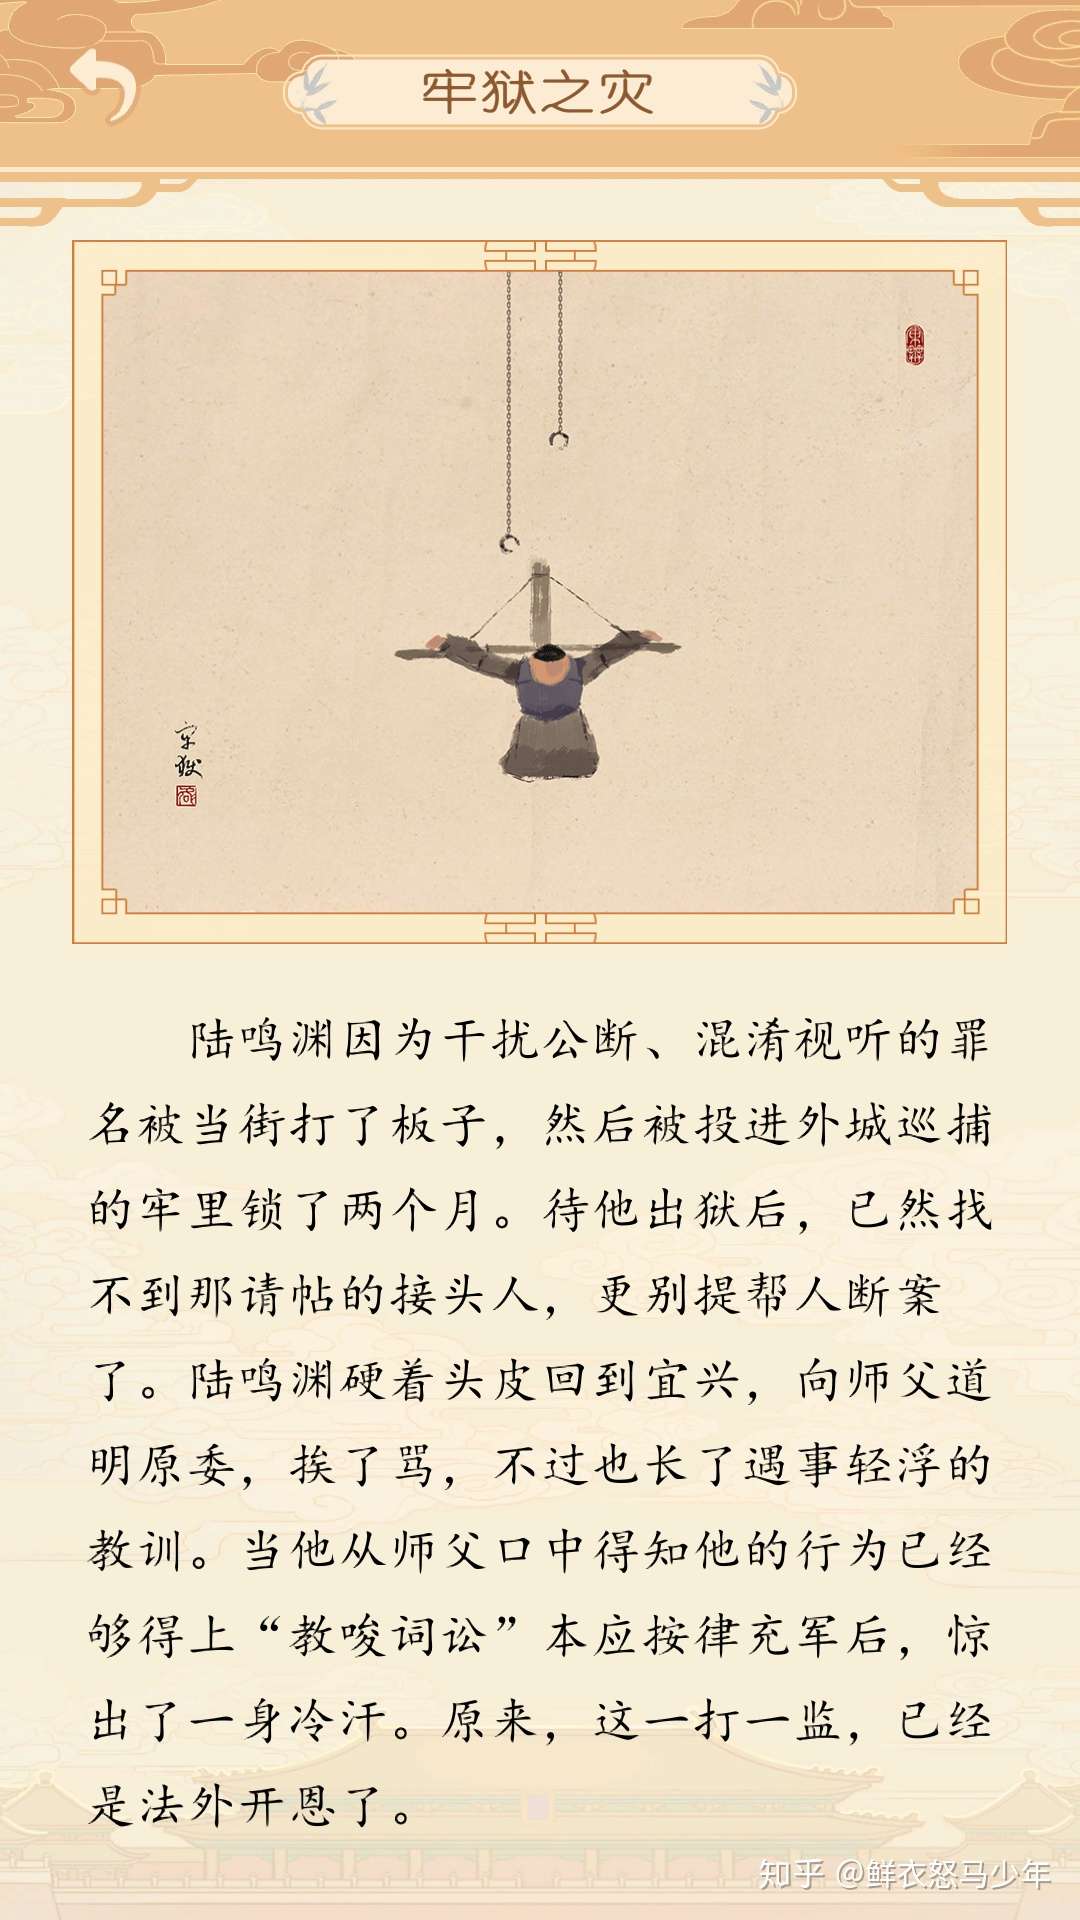 牢狱之灾
牢
狱
陆鸣渊因为干扰公断、混淆视听的罪
名被当街打了板子，然后被投进外城巡捕
的牢里锁了两个月。待他出狱后，已然找
不到那请帖的接头人，更别提帮人断案
了。陆鸣渊硬着头皮回到宜兴，向师父道
明原委，挨了骂，不过也长了遇事轻浮的
教训。当他从师父口中得知他的行为已经
够得上“教唆词讼”本应按律充军后，惊
出了一身冷汗。原来，这一打一监，已经
是法外开恩了。
知乎 @鲜衣怒马少年